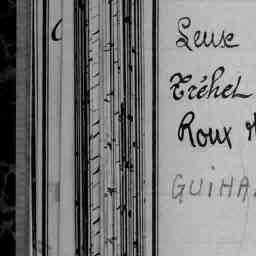 Leux
Tréhel
Roux
GUIHA